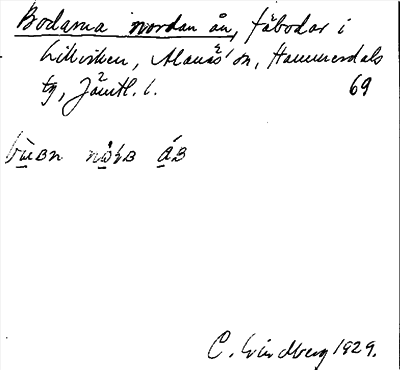 Bodarna nordan ån, fäbodar i
Lillviken, Alanäs sn, Hammerdals
tg, Jämtl. l. 69
C. Lindberg 1929.